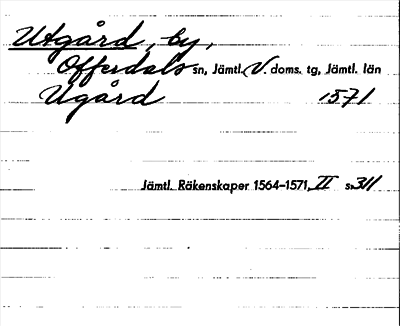 Utgård, by,
Offerdals sn, Jämtl. V. doms. tg, Jämtl. län
Ugård 1571
Jämtl. Räkenskaper 1564–1571, II s. 311